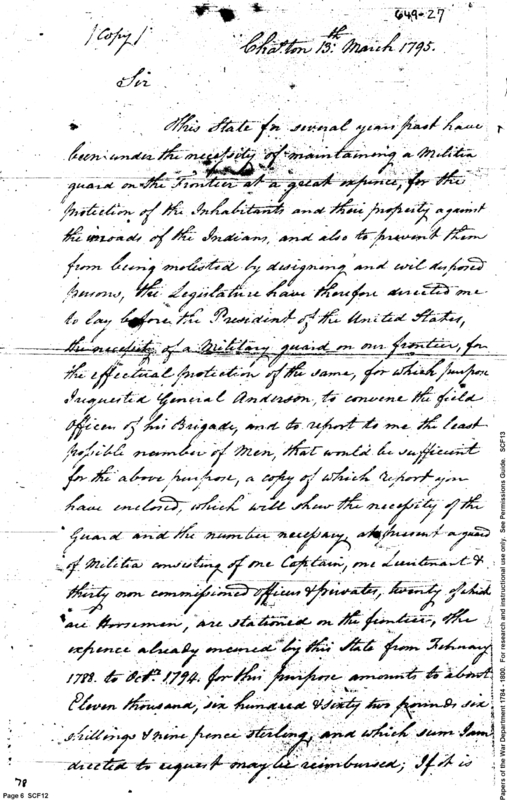 649-27
[Copy]
Cha.ton 13th March 1795.
Sir
This State for several years past have
been under the necessity of maintaining a Militia
guard on the Frontier at a great expence, for the
protection of the Inhabitants and their property against
the inroads of the Indians, and also to prevent them
from being molested by designing and evil disposed
Persons, the Legislature have therefore directed me
to lay before the President of the United States,
the necessity of a Military guard on our frontier, for
the effectual protection of the same, for which purpose
I requested General Anderson, to convene the field
Officers of his Brigade, and to report to me the least
possible number of Men, that would be sufficient
for the above purpose, a copy of which report you
have enclosed, which will shew the necessity of the
Guard and the number necessary, at present a guard
of Militia consisting of one Captain, one Lieutenant &
thirty non commissioned officers & privates, twenty of which
are Horsemen, are stationed on the frontier, the
expence already incured by this State from February
1788. to Octr. 1794. for this purpose amounts to about
Eleven thousand, six hundred & sixty two pounds six
shillings & nine pence sterling, and which sum I am
directed to request may be reimbursed; If it is
78
Page 6 SCF12
Papers of the War Department 1784 - 1800. For research and instructional use only. See Permissions Guide. SCF13